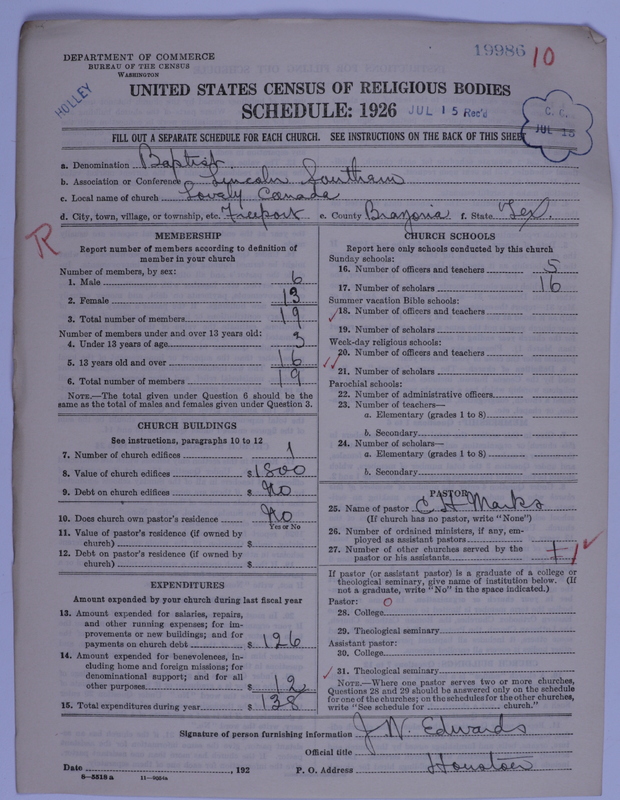 19986 10
DEPARTMENT OF COMMERCE
BUREAU OF THE CENSUS
WASHINGTON
HOLLEY
UNITED STATES CENSUS OF RELIGIOUS BODIES
SCHEDULE: 1926 JUL 15 Rec'd
C. E.
JUL 15
FILL OUT A SEPARATE SCHEDULE FOR EACH CHURCH. SEE INSTRUCTIONS ON THE BACK OF THIS SHEET
a. Denomination Baptist
b. Association or Conference Lyncoln Southern
c. Local name of church Lovely Canada
d. City, town, village, or township, etc. Freeport e. County Brazoria f. State Tex.
R
MEMBERSHIP
Report number of members according to definition of
member in your church
Number of members, by sex:
1. Male 6
2. Female 13
3. Total number of members 19
Number of members under and over 13 years old:
4. Under 13 years of age 3
5. 13 years old and over 16
6. Total number of members 19
NOTE.—The total given under Question 6 should be the
same as the total of males and females given under Question 3.
CHURCH BUILDINGS
See instructions, paragraphs 10 to 12
7. Number of church edifices 1
8. Value of church edifices $1800
9. Debt on church edifices $ No
10. Does church own pastor's residence No
Yes or No
11. Value of pastor's residence (if owned by
church) $
12. Debt on pastor's residence (if owned by
church) $
EXPENDITURES
Amount expended by your church during last fiscal year
13. Amount expended for salaries, repairs,
and other running expenses; for im-
provements or new buildings; and for
payments on church debt $ 126
14. Amount expended for benevolences, in-
cluding home and foreign missions; for
denominational support; and for all
other purposes $ 12
15. Total expenditures during year $ 138
CHURCH SCHOOLS
Report here only schools conducted by this church
Sunday schools:
16. Number of officers and teachers 5
17. Number of scholars 16
Summer vacation Bible schools:
18. Number of officers and teachers
19. Number of scholars
Week-day religious schools:
20. Number of officers and teachers
21. Number of scholars
Parochial schools:
22. Number of administrative officers
23. Number of teachers—
a. Elementary (grades 1 to 8)
b. Secondary
24. Number of scholars—
a. Elementary (grades 1 to 8)
b. Secondary
PASTOR
25. Name of pastor C H Marks
(If church has no pastor, write "None")
26. Number of ordained ministers, if any, em-
ployed as assistant pastors
27. Number of other churches served by the
pastor or his assistants 1
If pastor (or assistant pastor) is a graduate of a college or
theological seminary, give name of institution below. (If
not a graduate, write "No" in the space indicated.)
Pastor: O
28. College
29. Theological seminary
Assistant pastor:
30. College
31. Theological seminary
NOTE.—Where one pastor serves two or more churches,
Questions 28 and 29 should be answered only on the schedule
for one of the churches; on the schedules for the other churches,
write "See schedule for church."
Signature of person furnishing information J. W. Edwards
Official title
Date , 192 P. O. Address Houston
8—5518a 11—9054a